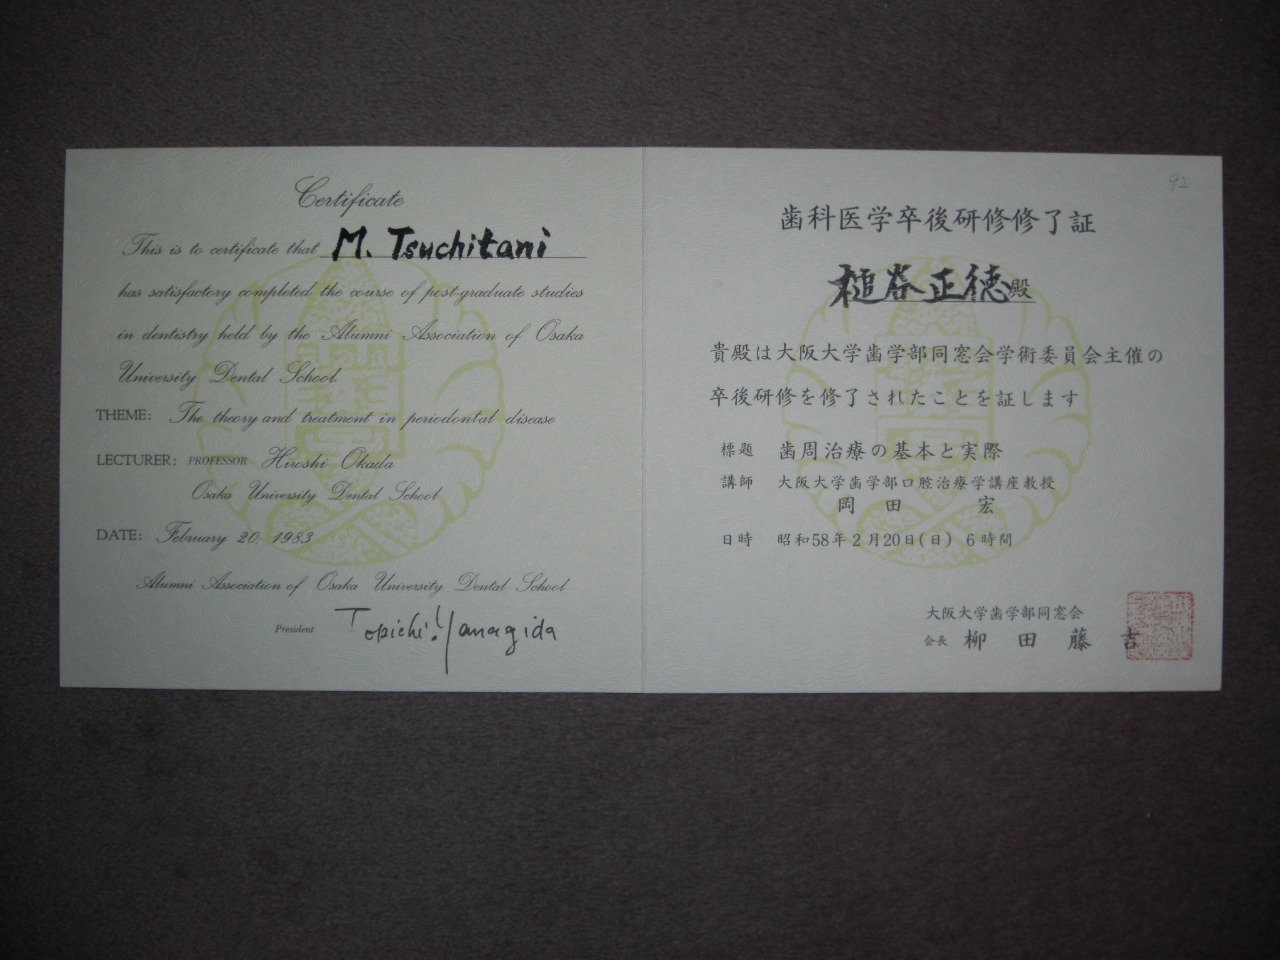 Certificate
This is to certificate that M. Tsuchitani
has satisfactory completed the course of post-graduate studies
in dentistry held by the Alumni Association of Osaka
University Dental School.
THEME: The theory and treatment in periodontal disease
LECTURER: PROFESSOR Hiroshi Okada
Osaka University Dental School
DATE: February 20, 1983
Alumni Association of Osaka University Dental School
President Topichi Yanagida
92
歯科医学卒後研修修了証
槌谷正徳殿
貴殿は大阪大学歯学部同窓会学術委員会主催の
卒後研修を修了されたことを証します
標題 歯周治療の基本と実際
講師 大阪大学歯学部口腔治療学講座教授
岡田 宏
日時 昭和58年2月20日(日) 6時間
大阪大学歯学部同窓会
会長 柳田藤吉